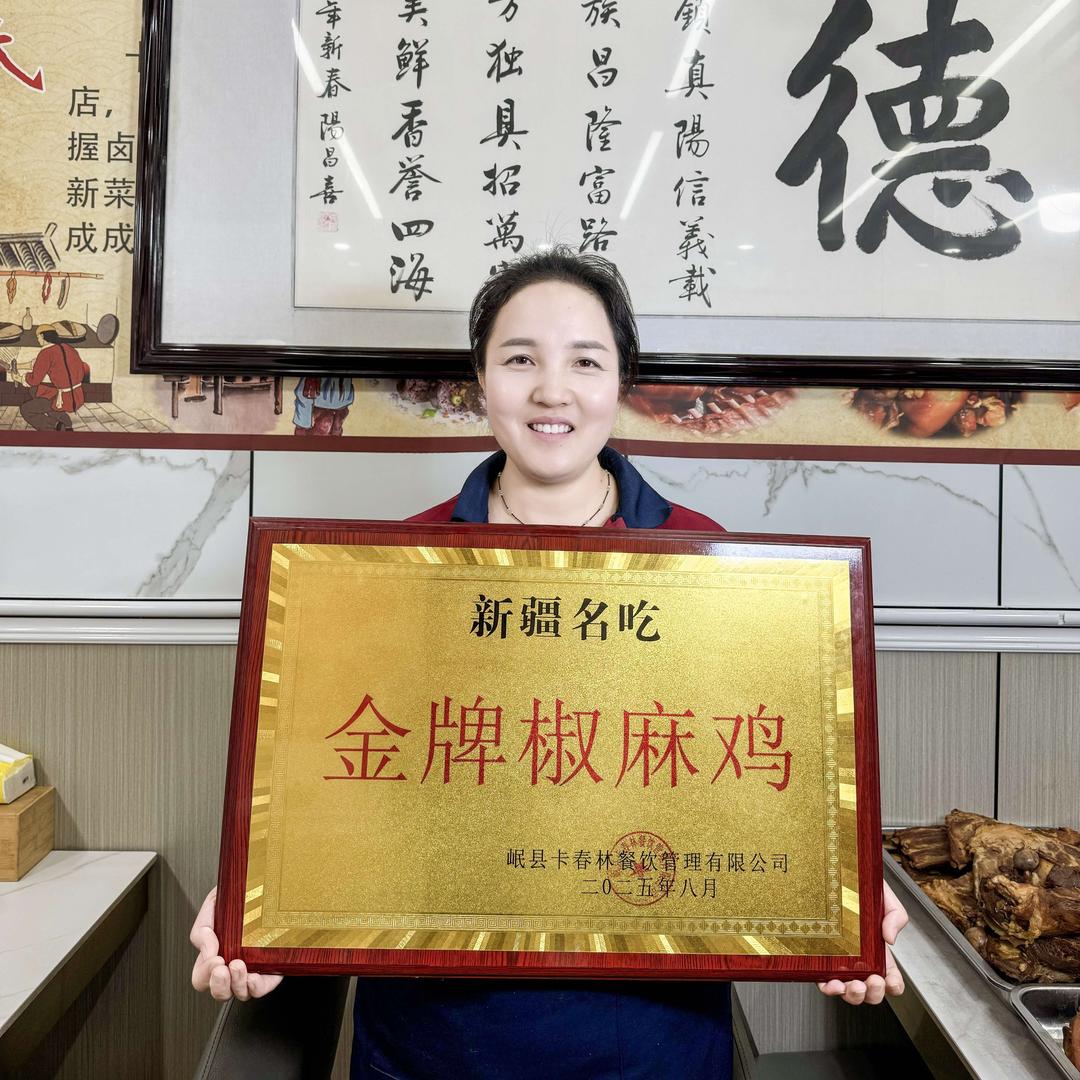 德
鎖真陽信義載
族昌隆富路
方独具招萬
美鮮香誉四海
年新春陽昌喜
店，
握卤
新菜
成成
新疆名吃
金牌椒麻鸡
岷县卡春林餐饮管理有限公司
二0二五年八月